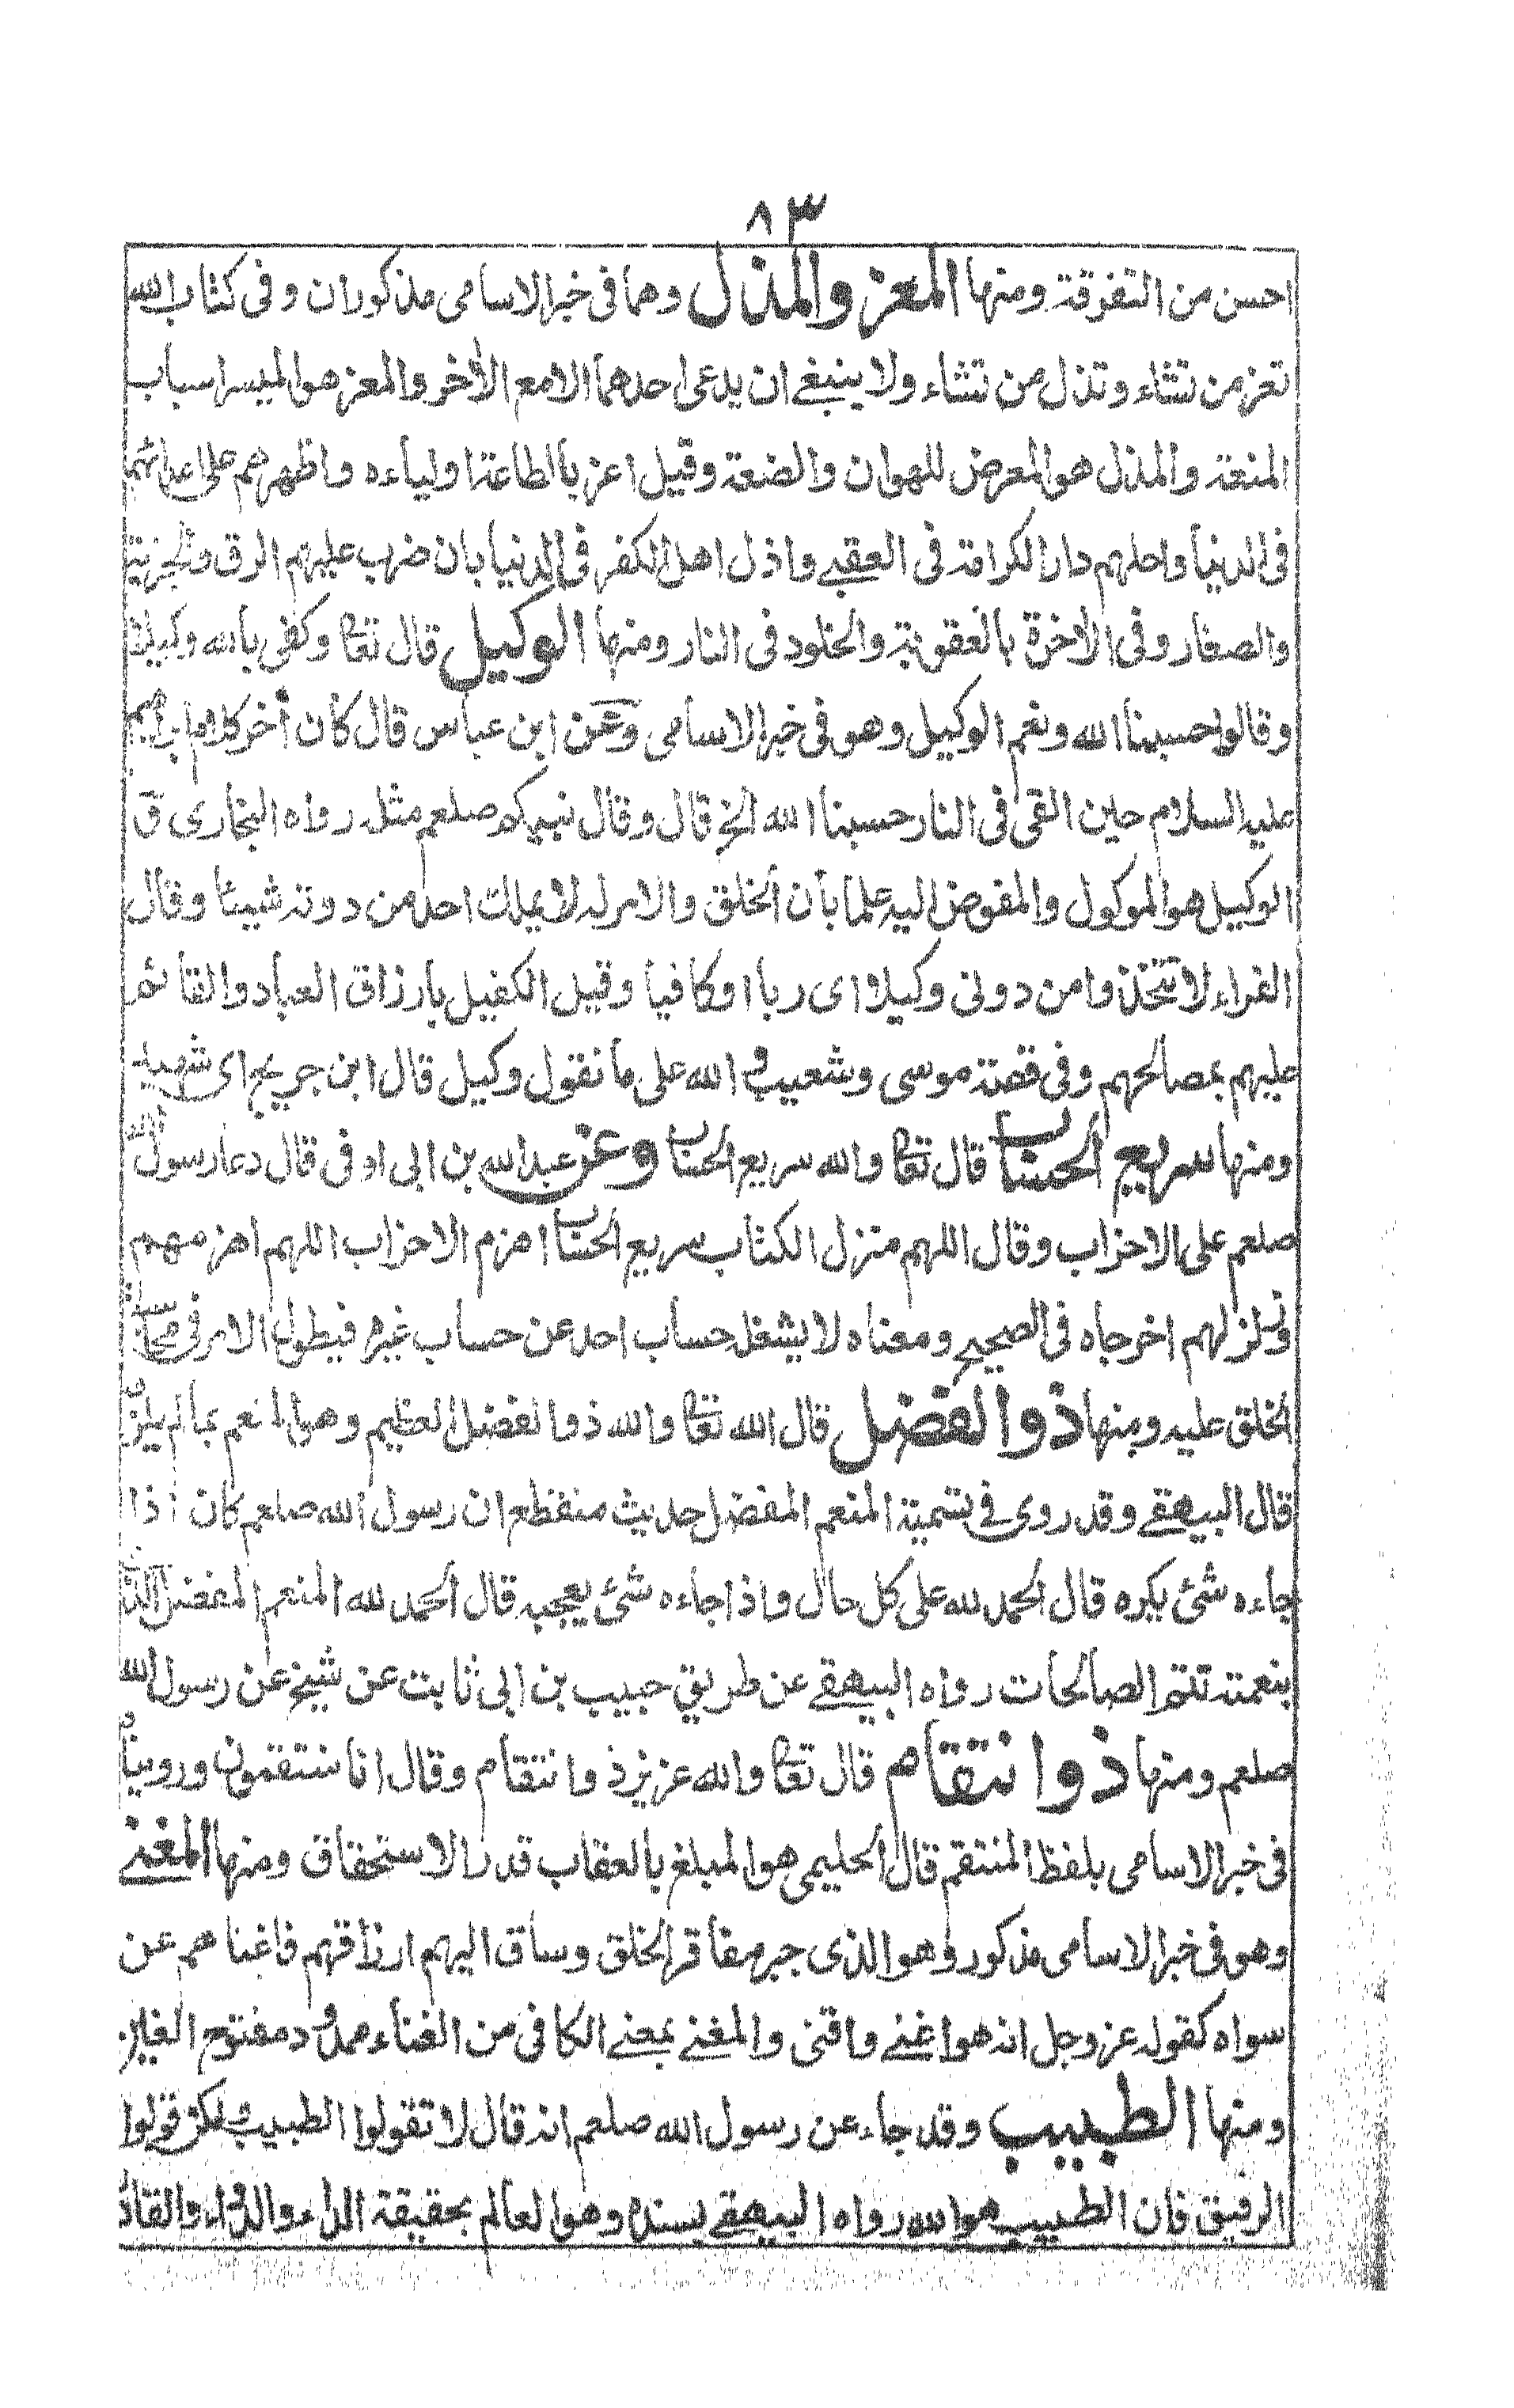 ٨٣
احسن من التفرقة ومنها المعز والمذل وهما فى خبر الاسامى مذكوران وفى كتاب الله
تعز من تشاء وتذل من تشاء ولا ينبغى ان يدعى احدهما الا مع الاٰخر والمعز هو الميسر اسباب
المنعة والمذل هو المعرض للهوان والضعة وقيل اعز بالطاعة اولياءه واظهرهم على اعدائهم
فى الدنيا واحلهم دار الكرامة فى العقبى واذل اهل الكفر فى الدنيا بان ضرب عليهم الرق والجزية
والصغار وفى الاخرة بالعقوبة والخلود فى النار ومنها الوكيل قال تعا وكفى بالله وكيلا
وقالوا حسبنا الله ونعم الوكيل وهو فى خبر الاسامى وعن ابن عباس قال كان أخر كلام ابراهيم
عليه السلام حين القى فى النار حسبنا الله الخ قال وقال نبيكم صلعم مثله رواه البخارى ق
الوكيل هو الموكول والمفوض اليه علما بأن الخلق والامر له لا يملك احد من دونه شيئا وقال
الفراء لا تتخذوا من دونى وكيلا اى ربا اوكافيا وقيل الكفيل بارزاق العباد والقائم
عليهم بمصالحهم وفى قصة موسى وشعيب الله على ما نقول وكيل قال ابن جريج اى شهيد
ومنها سريع الحساب قال تعا والله سريع الحساب وعن عبد الله بن ابى اوفى قال دعا رسول الله
صلعم على الاحزاب وقال اللهم منزل الكتاب سريع الحساب اهزم الاحزاب اللهم اهزمهم
وزلزلهم اخرجاه فى الصحيح ومعناه لا يشغله حساب احد عن حساب غيره فيطول الامر فى محاسبة
الخلق عليه ومنها ذوالفضل قال الله تعا والله ذوالفضل العظيم وهو المنعم بما لم يلزمه
قال البيهقى وقد روى فى تسمية المنعم المفضل حديث منقطع ان رسول الله صلعم كان اذا
جاءه شئ يكره قال الحمد لله على كل حال واذا جاءه شئ يعجبه قال الحمد لله المنعم المفضل الذى
بنعمته تتم الصالحات رواه البيهقى عن طريق حبيب بن ابى ثابت عن شيخ عن رسول الله
صلعم ومنها ذوانتقام قال تعا والله عزيز ذوانتقام وقال انا منتقمون وروينا
فى خبر الاسامى بلفظ المنتقم قال الحليمى هو المبلغ بالعقاب قدر الاستحقاق ومنها المغنى
وهو فى خبر الاسامى مذكور وهو الذى جبر مفاقر الخلق وساق اليهم ارزاقهم فاغناهم عن
سواه كقوله عز وجل انه هو اغنى واقنى والمغنى بمعنى الكافى من الغناء ممدود مفتوح الغين
ومنها الطبيب وقد جاء عن رسول الله صلعم انه قال لا تقولوا الطبيب ولكن قولوا
الرفيق فان الطبيب هو الله رواه البيهقى بسنده وهو العالم بحقيقة الداء والدواء والقادر